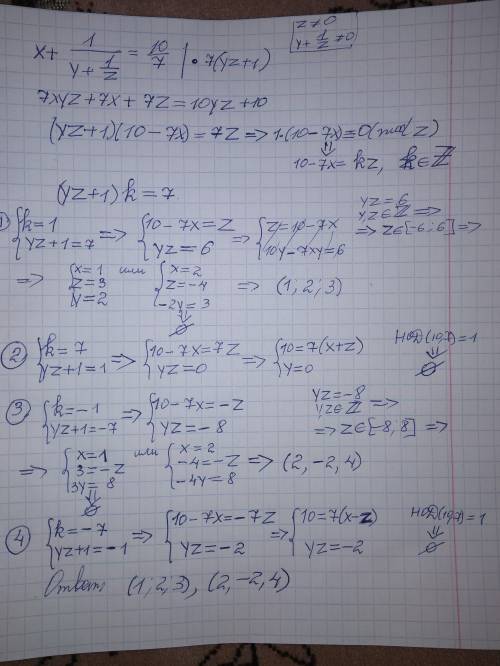 x + 1/(y + 1/z) = 10/7 | • 7(yz+1)
z ≠ 0
y + 1/z ≠ 0
7xyz + 7x + 7z = 10yz + 10
(yz+1)(10-7x) = 7z => 1·(10-7x) ≡ 0 (mod z)
⇓
10-7x = kz, k ∈ ℤ
(yz+1) k = 7
① { k=1 ; yz+1=7 => { 10-7x = z ; yz = 6 => { z = 10-7x ; 10y-7xy = 6
yz = 6
y,z ∈ ℤ =>
=> z ∈ [-6; 6] =>
=> { x=1 ; z=3 ; y=2 или { x=2 ; z=-4 ; -2y=3 => (1; 2; 3)
⇓
∅
② { k=7 ; yz+1=1 => { 10-7x = 7z ; yz=0 => { 10=7(x+z) ; y=0
НОД(10,7)=1
⇓
∅
③ { k=-1 ; yz+1=-7 => { 10-7x=-z ; yz=-8
yz=-8
y,z ∈ ℤ =>
=> z ∈ [-8, 8] =>
=> { x=1 ; 3=-z ; 3y=8 или { x=2 ; -4=-z ; -4y=8 => (2, -2, 4)
⇓
∅
④ { k=-7 ; yz+1=-1 => { 10-7x=-7z ; yz=-2 => { 10=7(x-z) ; yz=-2
НОД(10,7)=1
⇓
∅
Ответ: (1; 2; 3), (2, -2, 4)